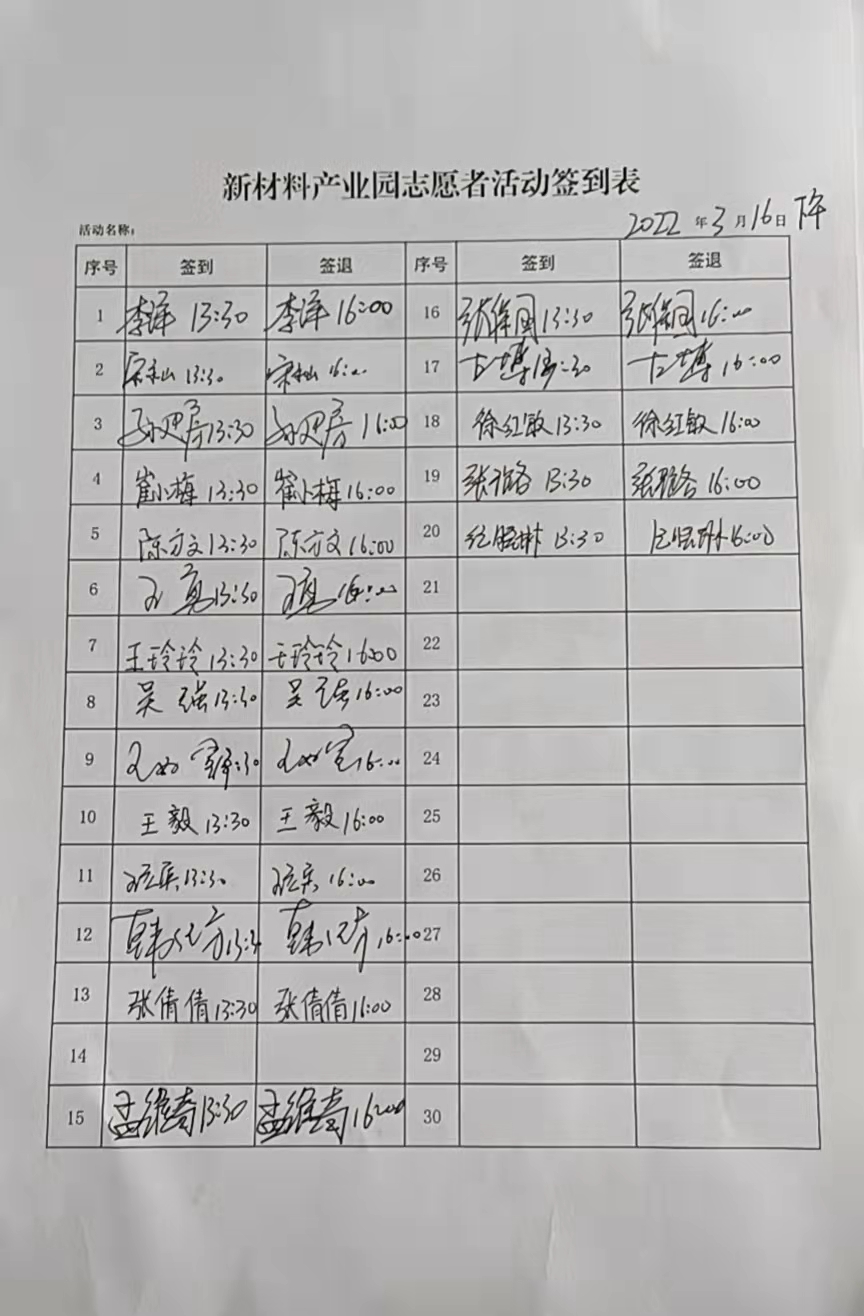 新材料产业园志愿者活动签到表
活动名称：
2022年3月16日 下午
序号 签到 签退 序号 签到 签退
1 李泽 13:30 李泽 16:00 16 13:30 16:00
2 13:30 16:00 17 13:30 16:00
3 13:30 16:00 18 徐红敏 13:30 徐红敏 16:00
4 崔小梅 13:30 崔小梅 16:00 19 13:30 16:00
5 陈方文 13:30 陈方文 16:00 20 13:30 16:00
6 13:30 16:00 21
7 王玲玲 13:30 王玲玲 16:00 22
8 吴强 13:30 吴强 16:00 23
9 13:30 16:00 24
10 王毅 13:30 王毅 16:00 25
11 13:30 16:00 26
12 13:3 16:00 27
13 张倩倩 13:30 张倩倩 16:00 28
14 29
15 孟维奇 13:30 孟维奇 16:00 30